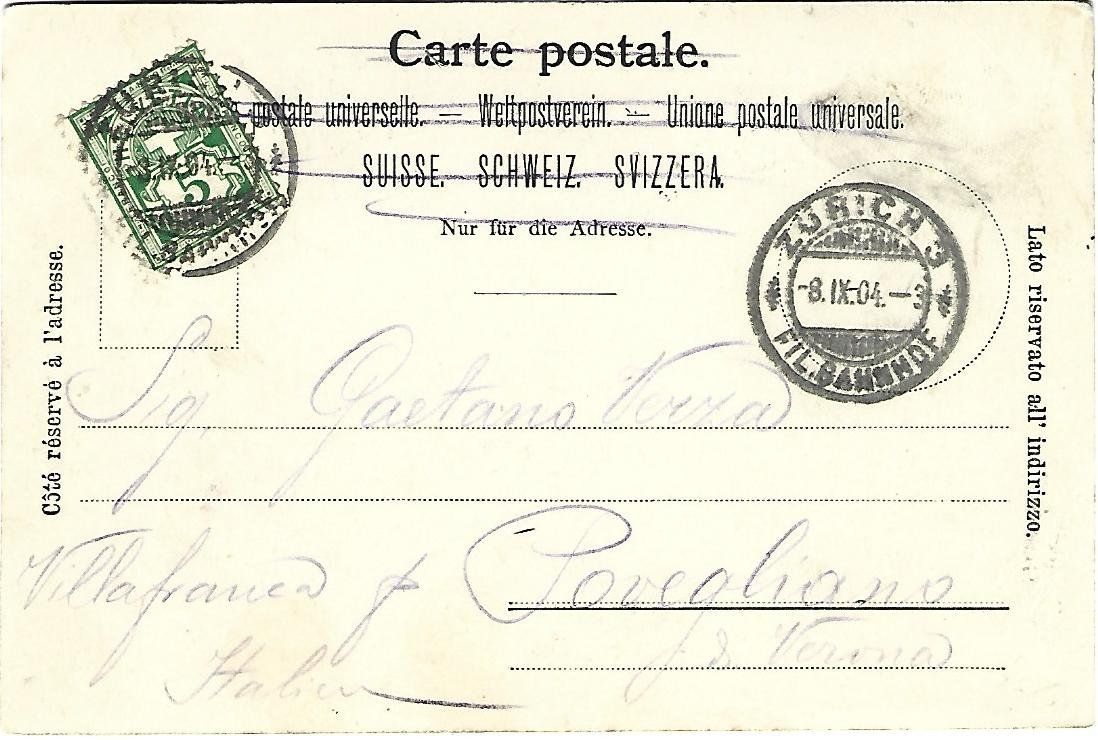 Carte postale.
postale universelle. — Weltpostverein. — Unione postale universale.
SUISSE. SCHWEIZ. SVIZZERA.
Nur für die Adresse.
5
ZÜRICH 3
-8.IX.04.-3
FIL.BAHNHOF
Côté réservé à l'adresse.
Lato riservato all' indirizzo.
Sig. Gaetano Verza
Villafranca p Povegliano
di Verona
Italien